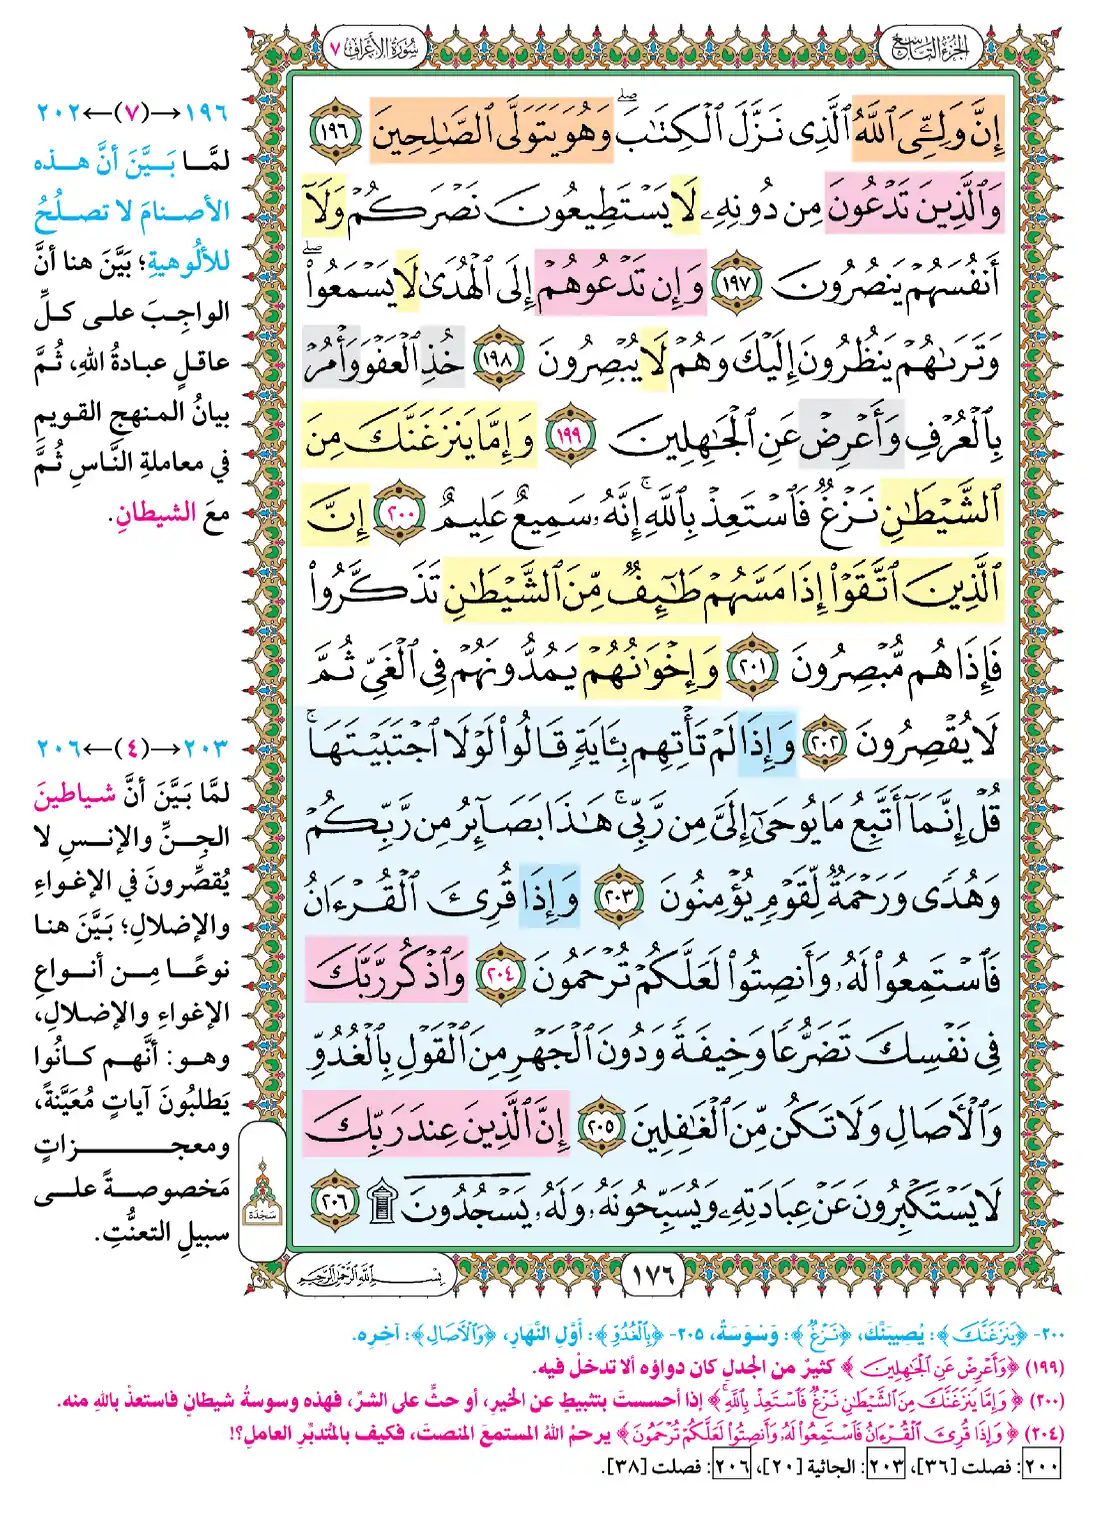 الجزء التاسع
سورة الأعراف ٧
إِنَّ وَلِـِّۧيَ ٱللَّهُ ٱلَّذِى نَزَّلَ ٱلْكِتَٰبَ ۖ وَهُوَ يَتَوَلَّى ٱلصَّٰلِحِينَ ١٩٦
وَٱلَّذِينَ تَدْعُونَ مِن دُونِهِۦ لَا يَسْتَطِيعُونَ نَصْرَكُمْ وَلَآ
أَنفُسَهُمْ يَنصُرُونَ ١٩٧ وَإِن تَدْعُوهُمْ إِلَى ٱلْهُدَىٰ لَا يَسْمَعُوا۟ ۖ
وَتَرَىٰهُمْ يَنظُرُونَ إِلَيْكَ وَهُمْ لَا يُبْصِرُونَ ١٩٨ خُذِ ٱلْعَفْوَ وَأْمُرْ
بِٱلْعُرْفِ وَأَعْرِضْ عَنِ ٱلْجَٰهِلِينَ ١٩٩ وَإِمَّا يَنزَغَنَّكَ مِنَ
ٱلشَّيْطَٰنِ نَزْغٌ فَٱسْتَعِذْ بِٱللَّهِ ۚ إِنَّهُۥ سَمِيعٌ عَلِيمٌ ٢٠٠ إِنَّ
ٱلَّذِينَ ٱتَّقَوْا۟ إِذَا مَسَّهُمْ طَٰٓئِفٌ مِّنَ ٱلشَّيْطَٰنِ تَذَكَّرُوا۟
فَإِذَا هُم مُّبْصِرُونَ ٢٠١ وَإِخْوَٰنُهُمْ يَمُدُّونَهُمْ فِى ٱلْغَىِّ ثُمَّ
لَا يُقْصِرُونَ ٢٠٢ وَإِذَا لَمْ تَأْتِهِم بِـَٔايَةٍ قَالُوا۟ لَوْلَا ٱجْتَبَيْتَهَا ۚ
قُلْ إِنَّمَآ أَتَّبِعُ مَا يُوحَىٰٓ إِلَىَّ مِن رَّبِّى ۚ هَٰذَا بَصَآئِرُ مِن رَّبِّكُمْ
وَهُدًى وَرَحْمَةٌ لِّقَوْمٍ يُؤْمِنُونَ ٢٠٣ وَإِذَا قُرِئَ ٱلْقُرْءَانُ
فَٱسْتَمِعُوا۟ لَهُۥ وَأَنصِتُوا۟ لَعَلَّكُمْ تُرْحَمُونَ ٢٠٤ وَٱذْكُر رَّبَّكَ
فِى نَفْسِكَ تَضَرُّعًا وَخِيفَةً وَدُونَ ٱلْجَهْرِ مِنَ ٱلْقَوْلِ بِٱلْغُدُوِّ
وَٱلْءَاصَالِ وَلَا تَكُن مِّنَ ٱلْغَٰفِلِينَ ٢٠٥ إِنَّ ٱلَّذِينَ عِندَ رَبِّكَ
لَا يَسْتَكْبِرُونَ عَنْ عِبَادَتِهِۦ وَيُسَبِّحُونَهُۥ وَلَهُۥ يَسْجُدُونَ ۩ ٢٠٦
سجدة
١٧٦
بسم الله الرحمن الرحيم
١٩٦→(٧)←٢٠٢
لمَّا بَيَّنَ أنَّ هذه
الأصنامَ لا تصلُحُ
للألُوهيةِ؛ بَيَّنَ هنا أنَّ
الواجِبَ على كلِّ
عاقلٍ عبادةُ اللهِ، ثُمَّ
بيانُ المنهجِ القويمِ
في معاملةِ النَّاسِ ثُمَّ
معَ الشيطانِ.
٢٠٣→(٤)←٢٠٦
لمَّا بَيَّنَ أنَّ شياطينَ
الجِنِّ والإنسِ لا
يُقصِّرونَ في الإغواءِ
والإضلالِ؛ بَيَّنَ هنا
نوعًا مِن أنواعِ
الإغواءِ والإضلالِ،
وهو: أنَّهم كانُوا
يَطلبُونَ آياتٍ مُعَيَّنةً،
ومعجزاتٍ
مَخصوصةً على
سبيلِ التعنُّتِ.
٢٠٠- ﴿يَنزَغَنَّكَ﴾: يُصِيبَنَّكَ، ﴿نَزْغٌ﴾: وَسْوَسَةٌ، ٢٠٥- ﴿بِٱلْغُدُوِّ﴾: أوَّلِ النَّهارِ، ﴿وَٱلْءَاصَالِ﴾: آخِرِه.
(١٩٩) ﴿وَأَعْرِضْ عَنِ ٱلْجَٰهِلِينَ﴾ كثيرٌ من الجدلِ كان دواؤه ألا تدخلَ فيه.
(٢٠٠) ﴿وَإِمَّا يَنزَغَنَّكَ مِنَ ٱلشَّيْطَٰنِ نَزْغٌ فَٱسْتَعِذْ بِٱللَّهِ ۚ﴾ إذا أحسستَ بتثبيطٍ عن الخيرِ، أو حثٍّ على الشرِّ، فهذه وسوسةُ شيطانٍ فاستعذْ باللهِ منه.
(٢٠٤) ﴿وَإِذَا قُرِئَ ٱلْقُرْءَانُ فَٱسْتَمِعُوا۟ لَهُۥ وَأَنصِتُوا۟ لَعَلَّكُمْ تُرْحَمُونَ﴾ يرحمُ اللهُ المستمعَ المنصتَ، فكيف بالمُتدبِّرِ العاملِ؟!
٢٠٠: فصلت [٣٦]، ٢٠٣: الجاثية [٢٠]، ٢٠٦: فصلت [٣٨].